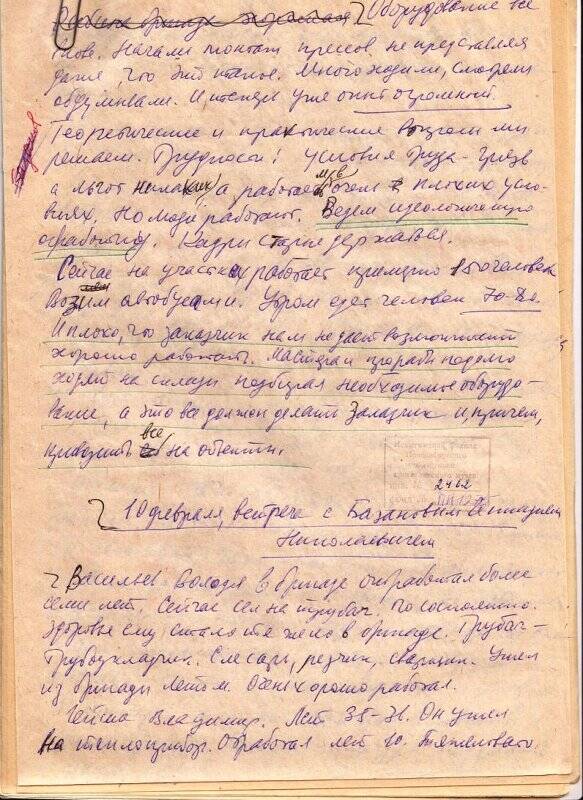 Оборудование не
ново. Начали монтаж прессов, не представляя
даже, что это такое. Много ходили, смотрели
обдумывали. И теперь уже опыт огромный.
Теоретические и практические вопросы мы
решаем. Трудности! Условия труда - грязь
а льгот никаких, а работаем мы в плохих усло-
виях. Но люди работают. Ведем идеологическую
обработку. Кадры старые держатся.
Сейчас на участке работает примерно человек
Возим автобусами. Утром едет человек 70-80.
И плохо, что заказчик нам не дает возможности
хорошо работать. Мастера и прорабы подолгу
ходят на склады подбирая необходимое оборудо-
вание, а это все должен делать Заказчик и, причем,
привозить все на объекты.
2462
10 февраля, встреча с Базановым Геннадием
Николаевичем
Васильев Володя в бригаде отработал более
семи лет. Сейчас сел на трубач. По состоянию
здоровья ему стало тяжело в бригаде. Трубач -
трубоукладчик. Слесарь, резчик, сварщик. Ушел
из бригады летом. Очень хорошо работал.
Владимир. Лет 35-31. Он ушел
на теплоприбор. Отработал лет 10.